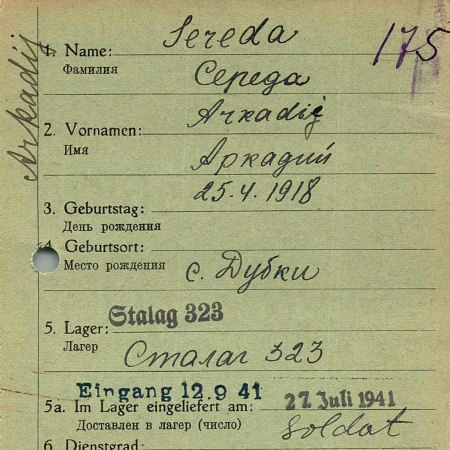 Arkadij
175
1. Name: Sereda
Фамилия Середа
Arkadij
2. Vornamen:
Имя Аркадий
25.4.1918
3. Geburtstag:
День рождения
4. Geburtsort:
Место рождения с. Дубки
5. Lager: Stalag 323
Лагер Сталаг 323
Eingang 12.9 41
5a. Im Lager eingeliefert am: 27. Juli 1941
Доставлен в лагер (число) Soldat
6. Dienstgrad: